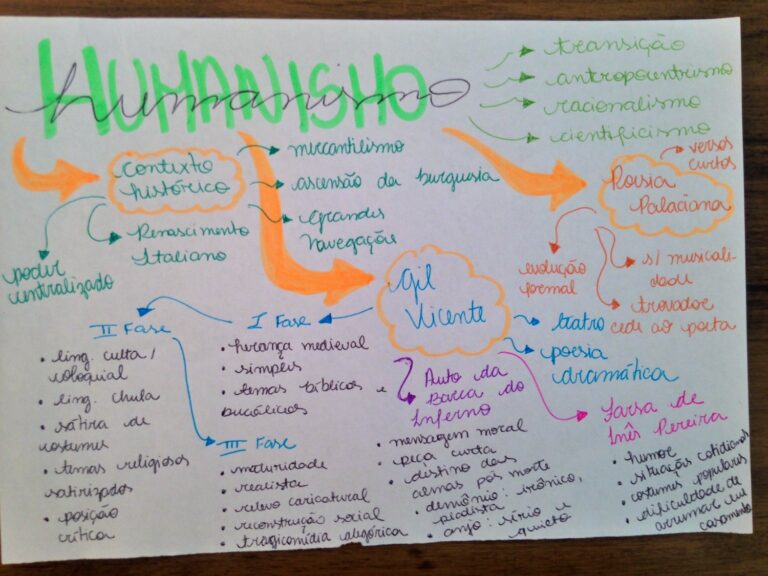 HUMANISMO
humanismo
transição
antropocentrismo
racionalismo
cientificismo
contexto
histórico
mercantilismo
ascensão da burguesia
Grandes
Navegações
Renascimento
Italiano
poder
centralizado
Poesia
Palaciana
versos
curtos
evolução
formal
s/ musicali-
dade
trovador
cede ao poeta
Gil
Vicente
teatro
poesia
dramática
I Fase
• herança medieval
• simples
• temas bíblicos e
bucólicos
II Fase
• ling. culta/
coloquial
• ling. chula
• sátira de
costumes
• temas religiosos
satirizados
• posição
crítica
III Fase
• maturidade
• realista
• relevo caricatural
• reconstrução social
• tragicomédia alegórica
Auto da
Barca do
Inferno
• mensagem moral
• peça curta
• destino das
almas pós morte
• demônio: irônico,
piadista
• anjo: sério e
quieto
Farsa de
Inês Pereira
• humor
• situações cotidianas
• costumes populares
• dificuldade de
arrumar um
casamento